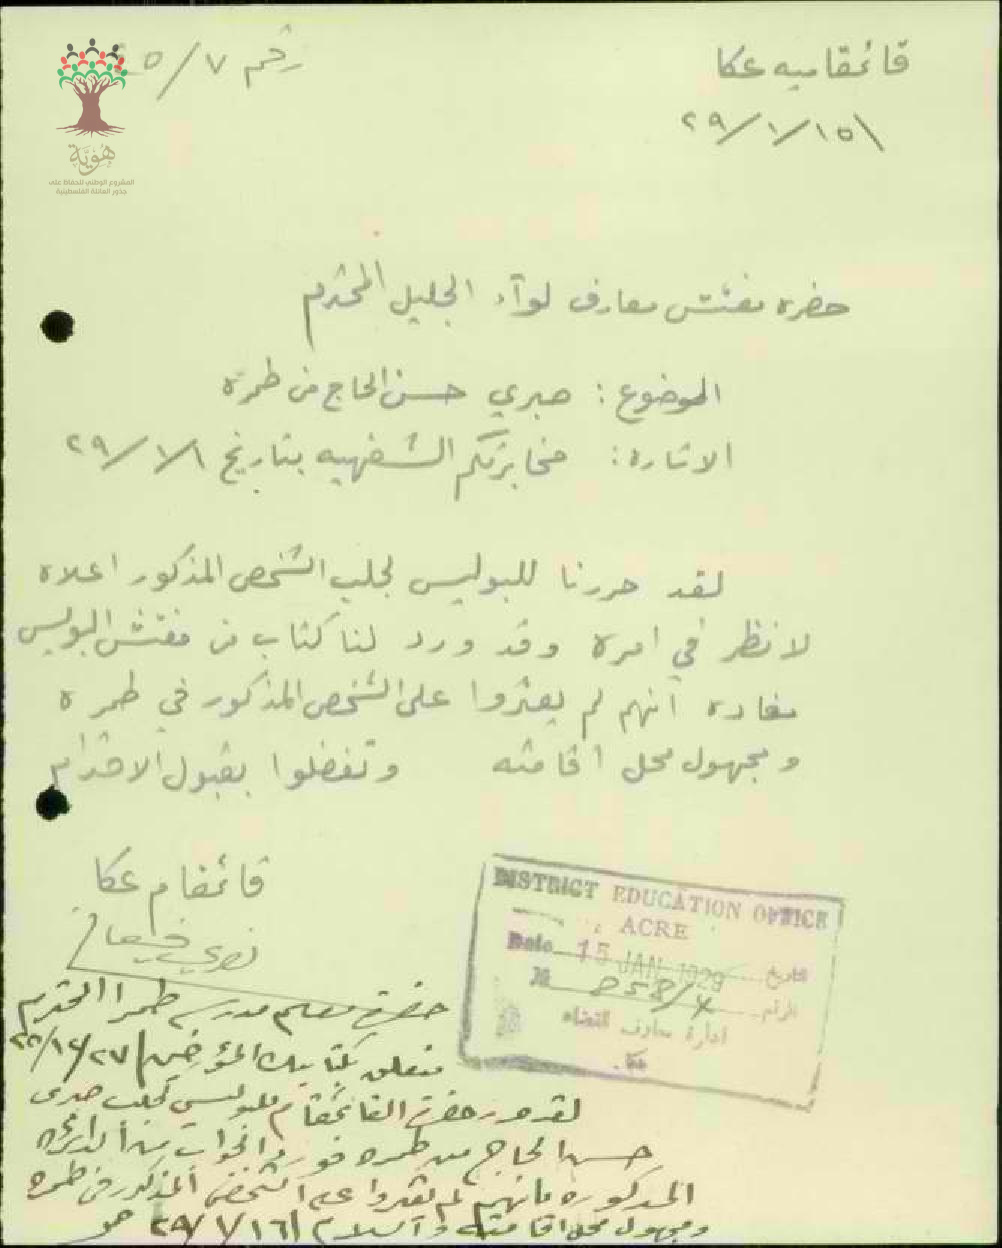 قائمقاميه عكا
رقم ٧/
١٥/١/٢٩
هُويَّة
المشروع الوطني للحفاظ على
جذور العائلة الفلسطينية
حضره مفتش معارف لوآء الجليل المحترم
الموضوع : صبري حسن الحاج من طمره
الاشاره : مخابرتكم الشفهيه بتاريخ ٨/١/٢٩
لقد حررنا للبوليس لجلب الشخص المذكور اعلاه
لانظر في امره وقد ورد لنا كتاب من مفتش البوليس
مفاده انهم لم يعثروا على الشخص المذكور في طمره
ومجهول محل اقامته وتفضلوا بقبول الاحترام
قائمقام عكا
DISTRICT EDUCATION OFFICE
ACRE
Date 15 JAN 1929 التاريخ
№ الرقم
ادارة معارف القضاء
عكا
حضرة معلم مدرسة طمرا المحترم
متعلق بكتابك المؤرخ في
لقد حرر حضرة القائمقام للبوليس لجلب صبري
حسن الحاج من طمره فورد الجواب من الدائره
المذكوره بانهم لم يعثروا على الشخص المذكور في طمره
ومجهول محل اقامته والسلام ١٦/١/٢٩